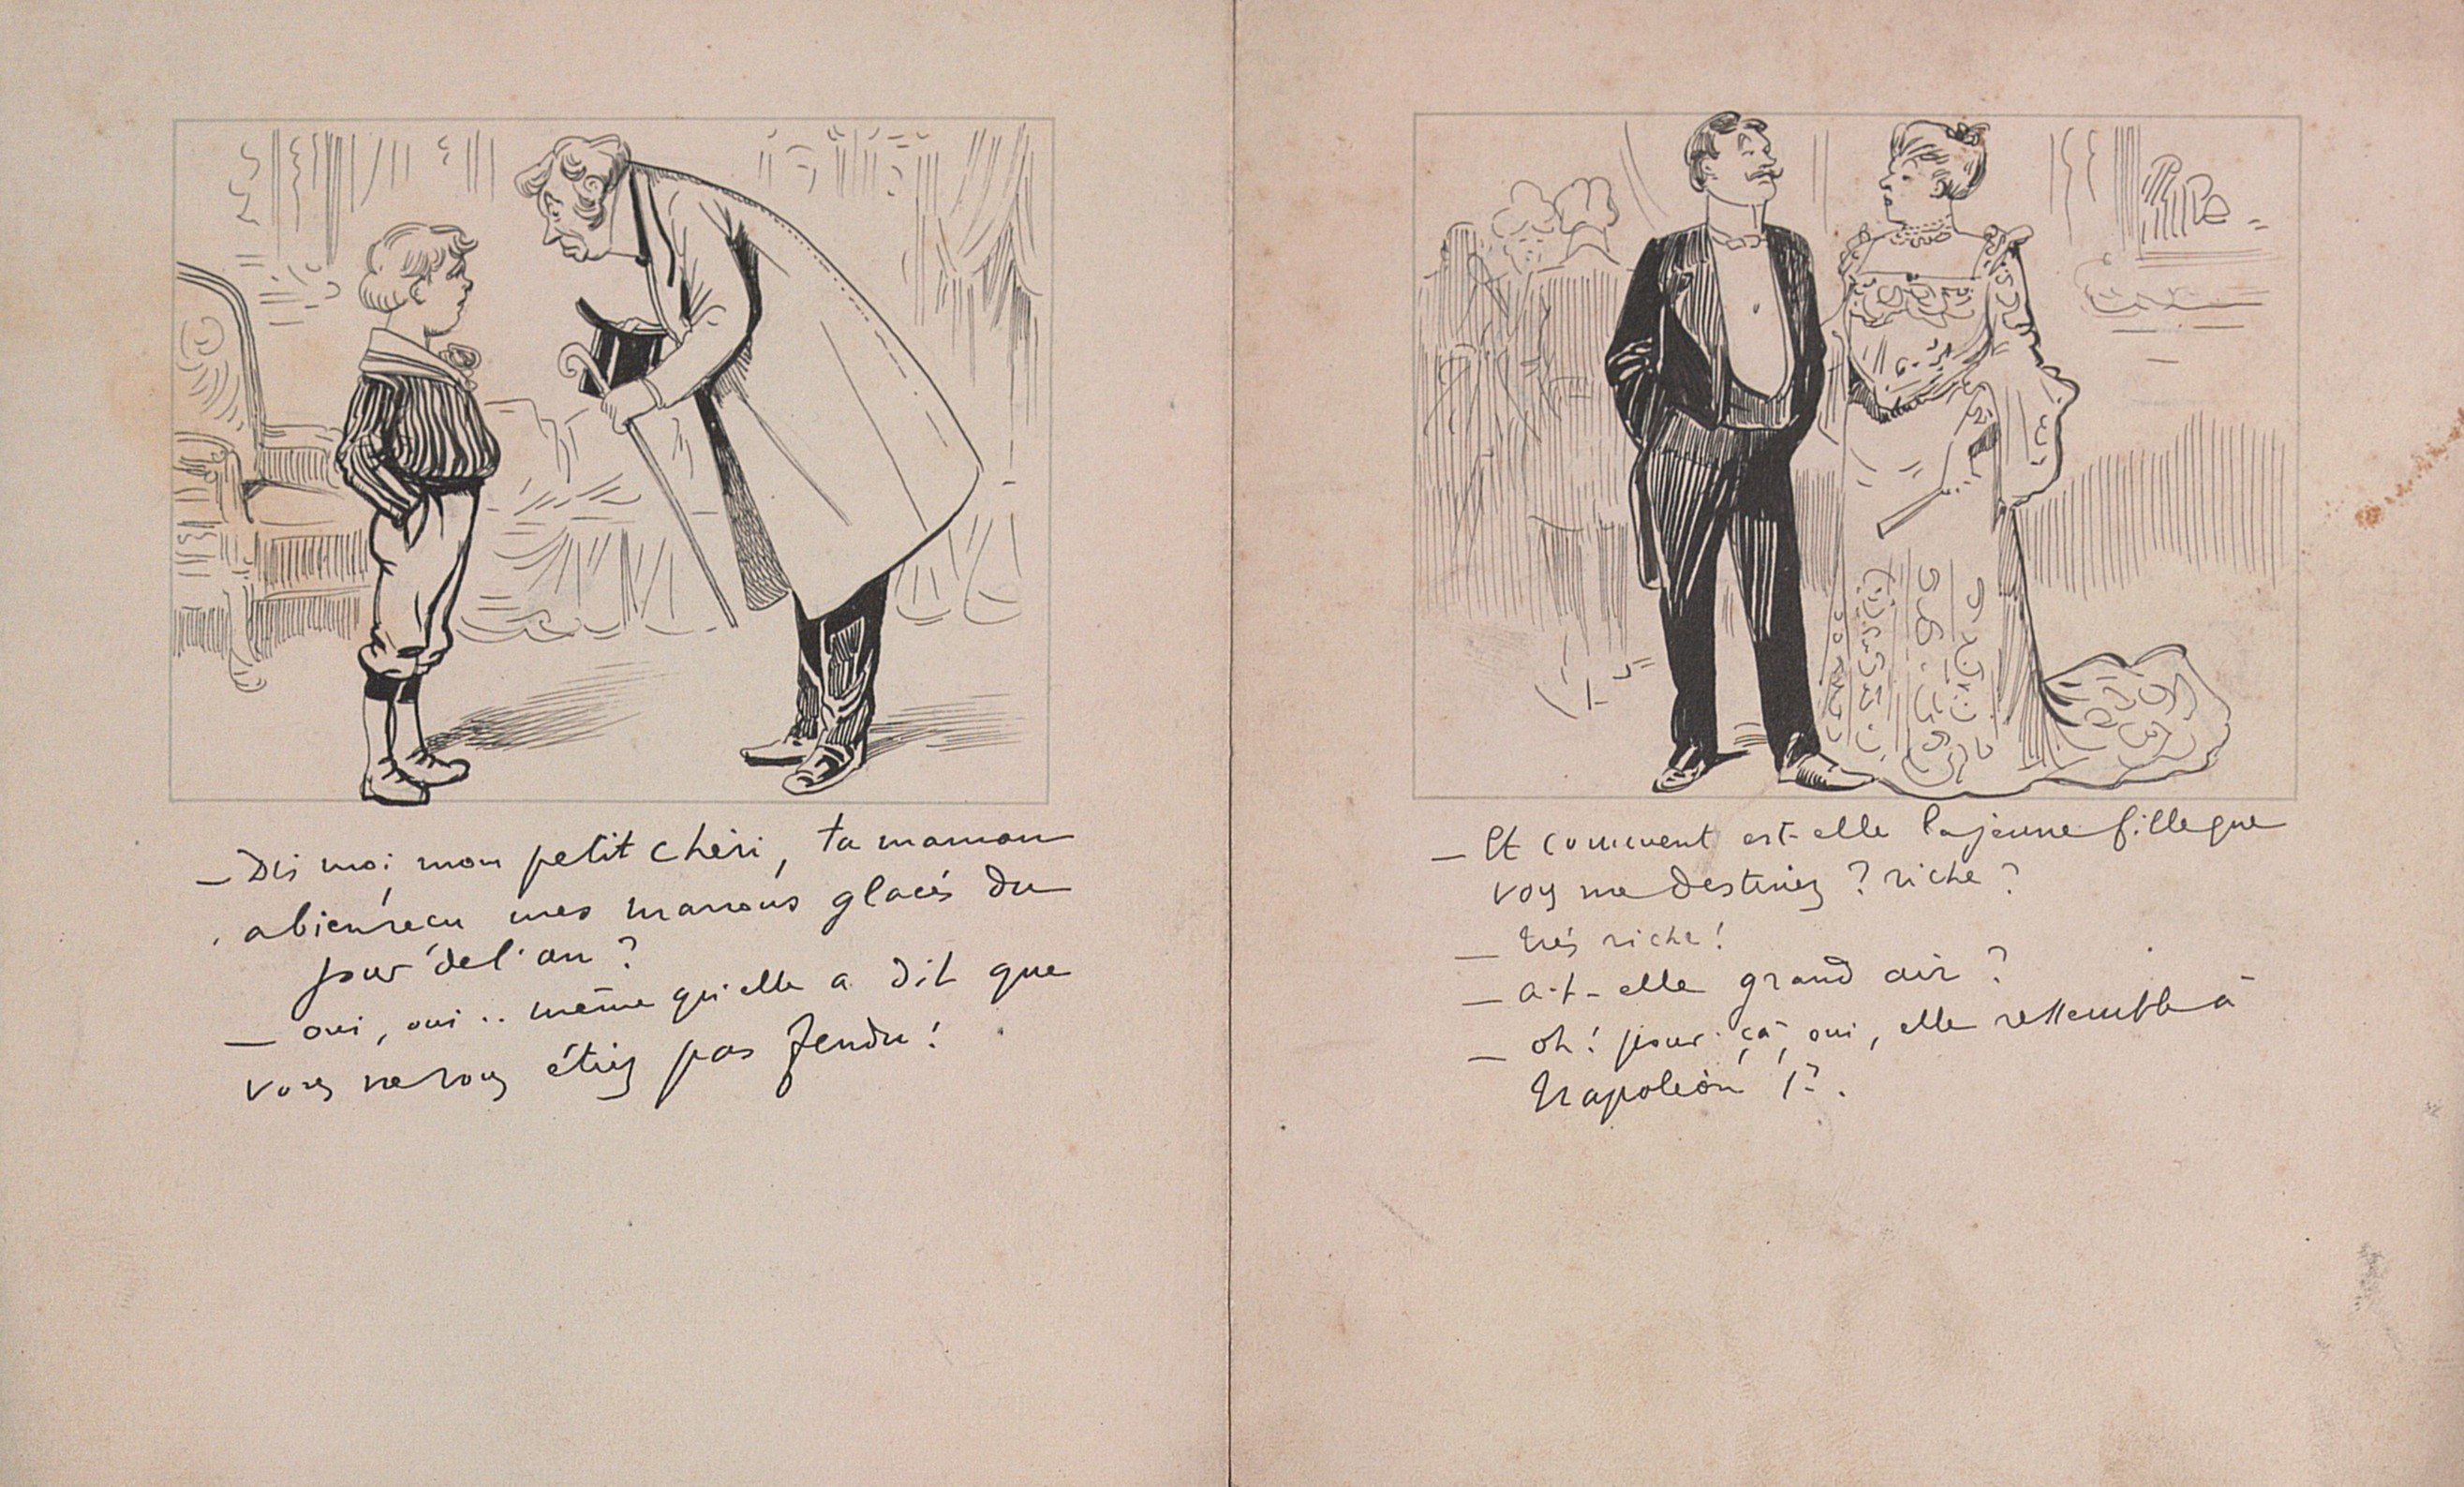 — Dis moi mon petit chéri, ta maman
a bien reçu mes marrons glacés du
jour de l'an ?
— oui, oui .. même qu'elle a dit que
vous ne vous étiez pas fendu !
— Et comment est-elle la jeune fille que
vous me destiniez ? riche ?
— très riche !
— a-t-elle grand air ?
— oh ! pour ça, oui, elle ressemble à
Napoléon 1er.